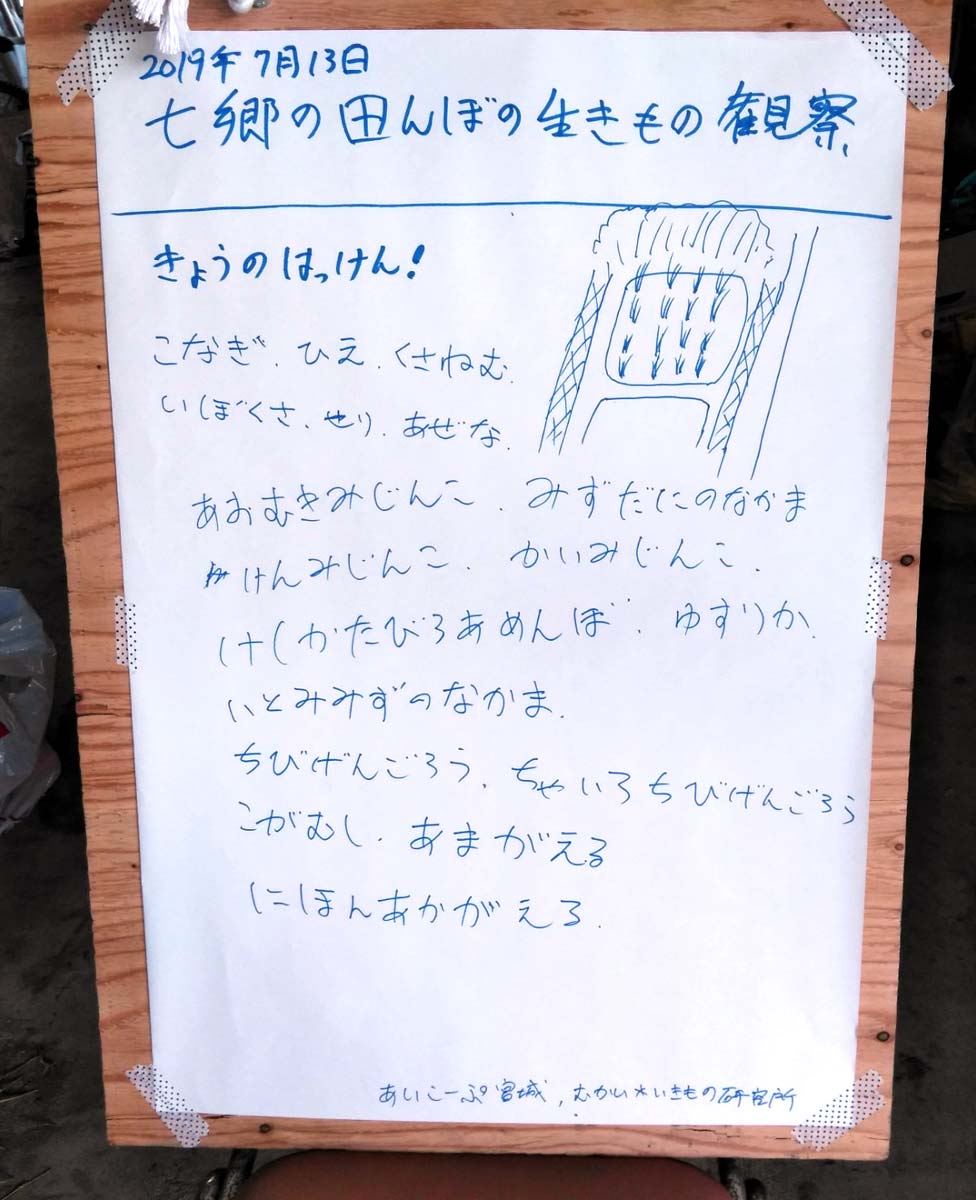 2019年7月13日
七郷の田んぼの生きもの観察
きょうのはっけん!
こなぎ、ひえ、くさねむ、
いぼくさ、せり、あぜな、
あおむきみじんこ、みずだにのなかま
けんみじんこ、かいみじんこ、
けしかたびろあめんぼ、ゆすりか、
いとみみずのなかま、
ちびげんごろう、ちゃいろちびげんごろう
こがむし、あまがえる
にほんあかがえる、
あいこーぷ宮城,むかい*いきもの研究所